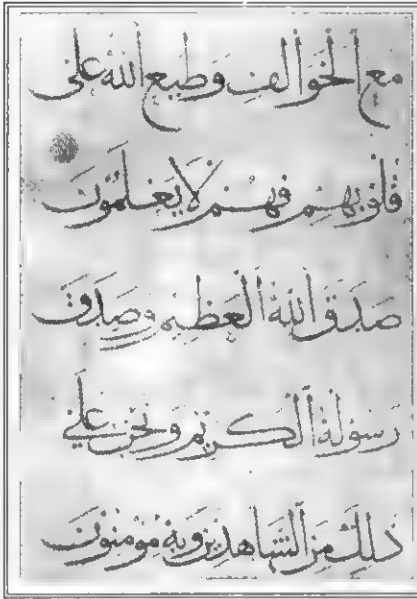 مع الخوالف وطبع الله على
قلوبهم فهم لا يعلمون
صدق الله العظيم وصدق
رسوله الكريم ونحن على
ذلك من الشاهدين وبه مؤمنون